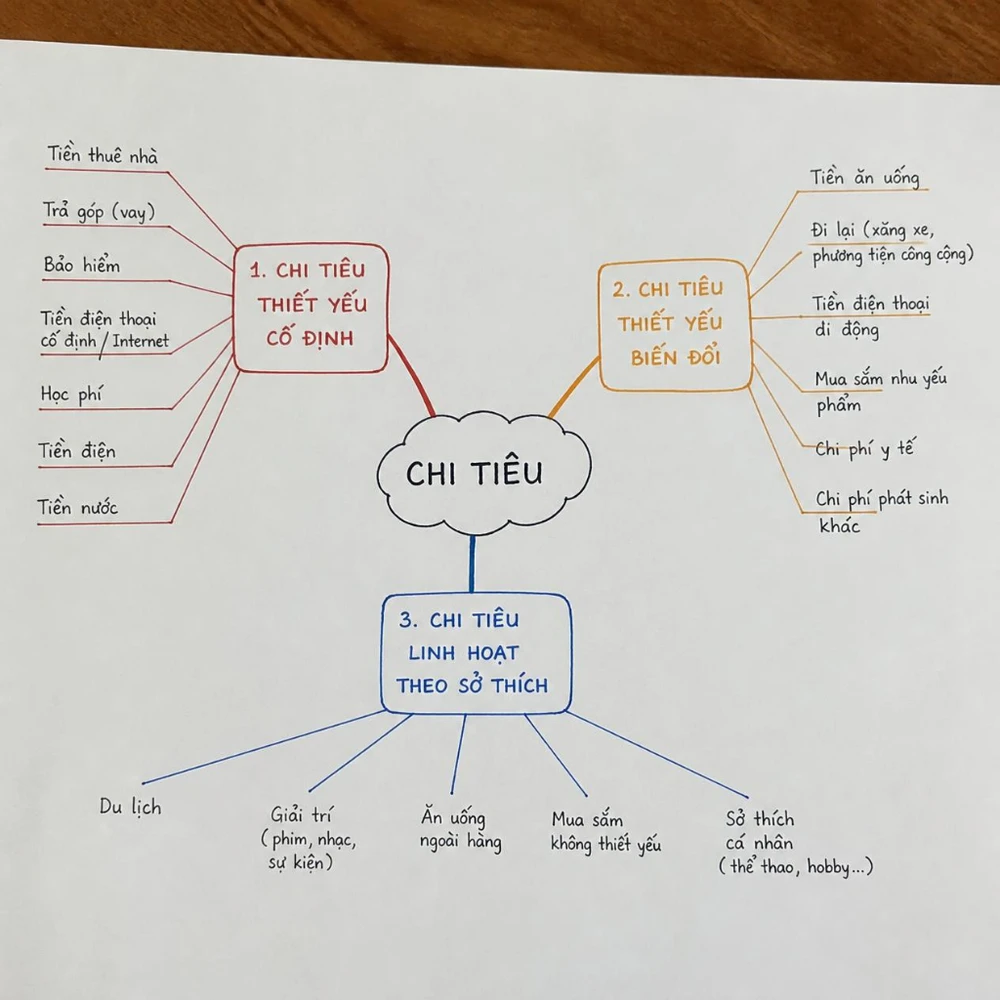 CHI TIÊU
1. CHI TIÊU
THIẾT YẾU
CỐ ĐỊNH
Tiền thuê nhà
Trả góp (vay)
Bảo hiểm
Tiền điện thoại
cố định / Internet
Học phí
Tiền điện
Tiền nước
2. CHI TIÊU
THIẾT YẾU
BIẾN ĐỔI
Tiền ăn uống
Đi lại (xăng xe,
phương tiện công cộng)
Tiền điện thoại
di động
Mua sắm nhu yếu
phẩm
Chi phí y tế
Chi phí phát sinh
khác
3. CHI TIÊU
LINH HOẠT
THEO SỞ THÍCH
Du lịch
Giải trí
(phim, nhạc,
sự kiện)
Ăn uống
ngoài hàng
Mua sắm
không thiết yếu
Sở thích
cá nhân
(thể thao, hobby...)